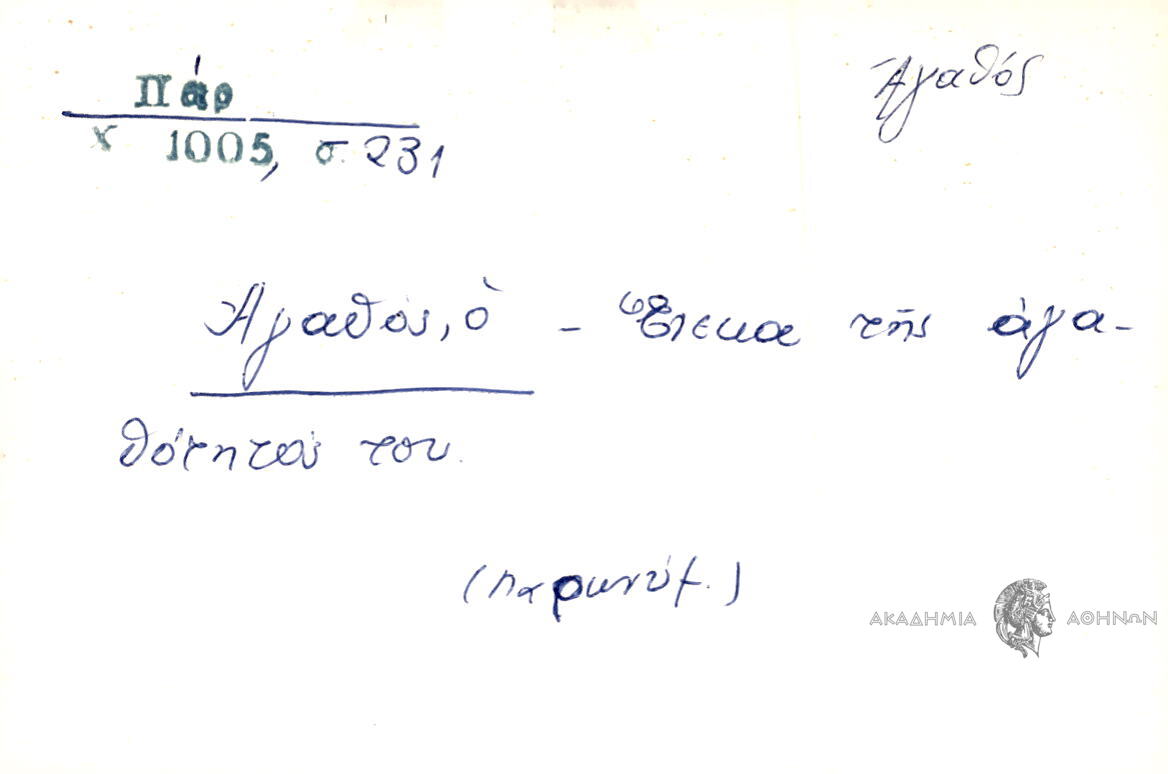 Πάρ
Ἀγαθός
χ 1005, σ. 231
Ἀγαθός, ὁ - Ἕνεκα τῆς ἀγα-
θότητός του.
(παρωνύμ.)
ΑΚΑΔΗΜΙΑ ΑΘΗΝΩΝ